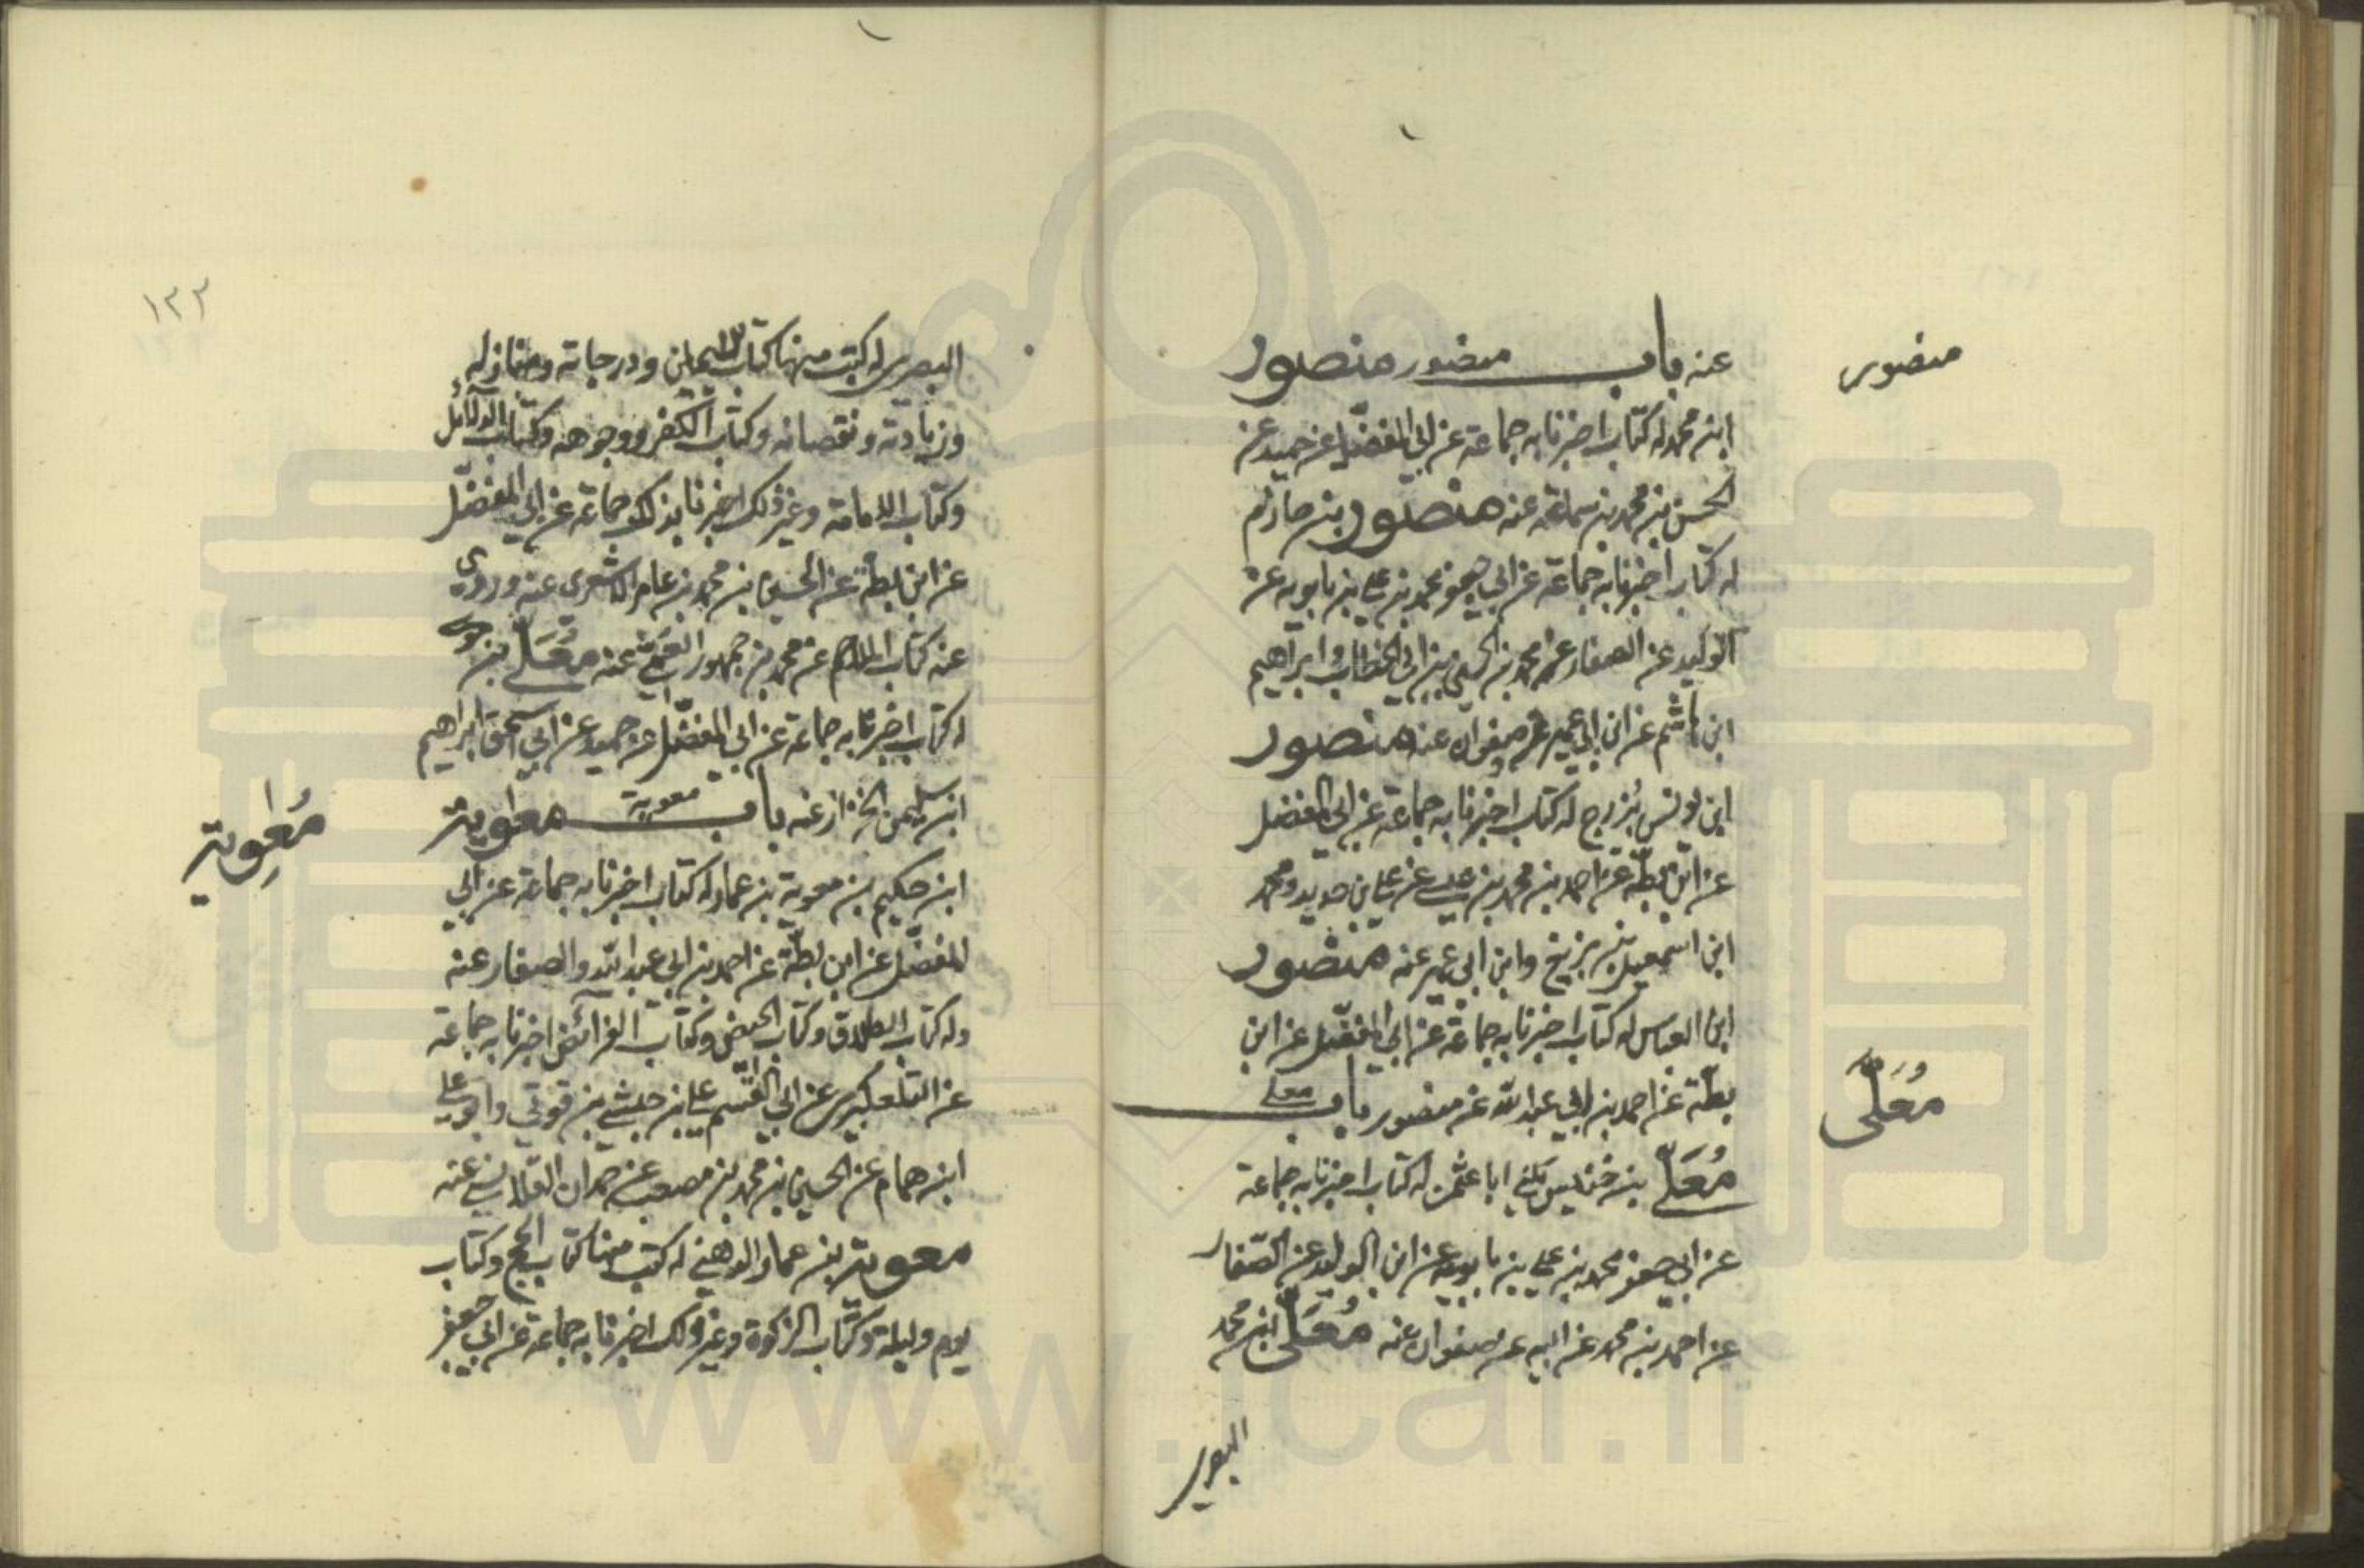 منصور
عنه باب منصور منصور
ابن محمد له كتاب اخبرنا به جماعة عن ابي المفضل عن حميد عن
الحسن بن محمد بن سماعة عنه منصور بن حازم
له كتاب اخبرنا به جماعة عن ابي جعفر محمد بن علي بن بابويه عن
الوليد عن الصفار عن محمد بن الحسين بن ابي الخطاب و ابراهيم
ابن هاشم عن ابن ابي عمير و صفوان عنه منصور
ابن يونس بزرج له كتاب اخبرنا به جماعة عن ابي المفضل
عن ابن بطة عن احمد بن محمد بن عيسى عن علي بن حديد و محمد
ابن اسمعيل بن بزيع وابن ابي عمير عنه منصور
ابن العباس له كتاب اخبرنا به جماعة عن ابي المفضل عن ابن
بطة عن احمد بن ابي عبد الله عن منصور باب معلى
معلى
مُعَلّى بن خنيس يكنى ابا عثمن له كتاب اخبرنا به جماعة
عن ابي جعفر محمد بن علي بن بابويه عن ابن الوليد عن الصفار
عن احمد بن محمد عن ابيه عن صفوان عنه مُعَلّى ابن محمد
البصري
١٢٣
البصري له كتب منها كتاب الايمان ودرجاته ومنازله
وزيادته ونقصانه وكتاب الكفر ووجوهه وكتاب الدلائل
وكتاب الامامة وغير ذلك اخبرنا بذلك جماعة عن ابي المفضل
عن ابن بطة عن الحسين بن محمد بن عامر الاشعري عنه وروى
عنه كتاب الملاحم عن محمد بن جمهور القمي عنه مُعَلّى بن موسى
له كتاب اخبرنا به جماعة عن ابي المفضل عن حميد عن ابي اسحق ابراهيم
ابن سليمن الخزاز عنه باب معوية معوية
مُعٰوية
ابن حكيم بن معوية بن عمار له كتاب اخبرنا به جماعة عن ابي
المفضل عن ابن بطة عن احمد بن ابي عبد الله والصفار عنه
وله كتاب الطلاق وكتاب الحيض وكتاب الفرائض اخبرنا به جماعة
عن التلعكبري عن ابي القسم علي بن حبشي بن قوني وابو علي
ابن همام عن الحسين بن محمد بن مصعب عن حمدان القلانسي عنه
معوية بن عمار الدهني له كتب منها كتاب الحج وكتاب
يوم وليلة وكتاب الزكوة وغير ذلك اخبرنا به جماعة عن ابي جعفر